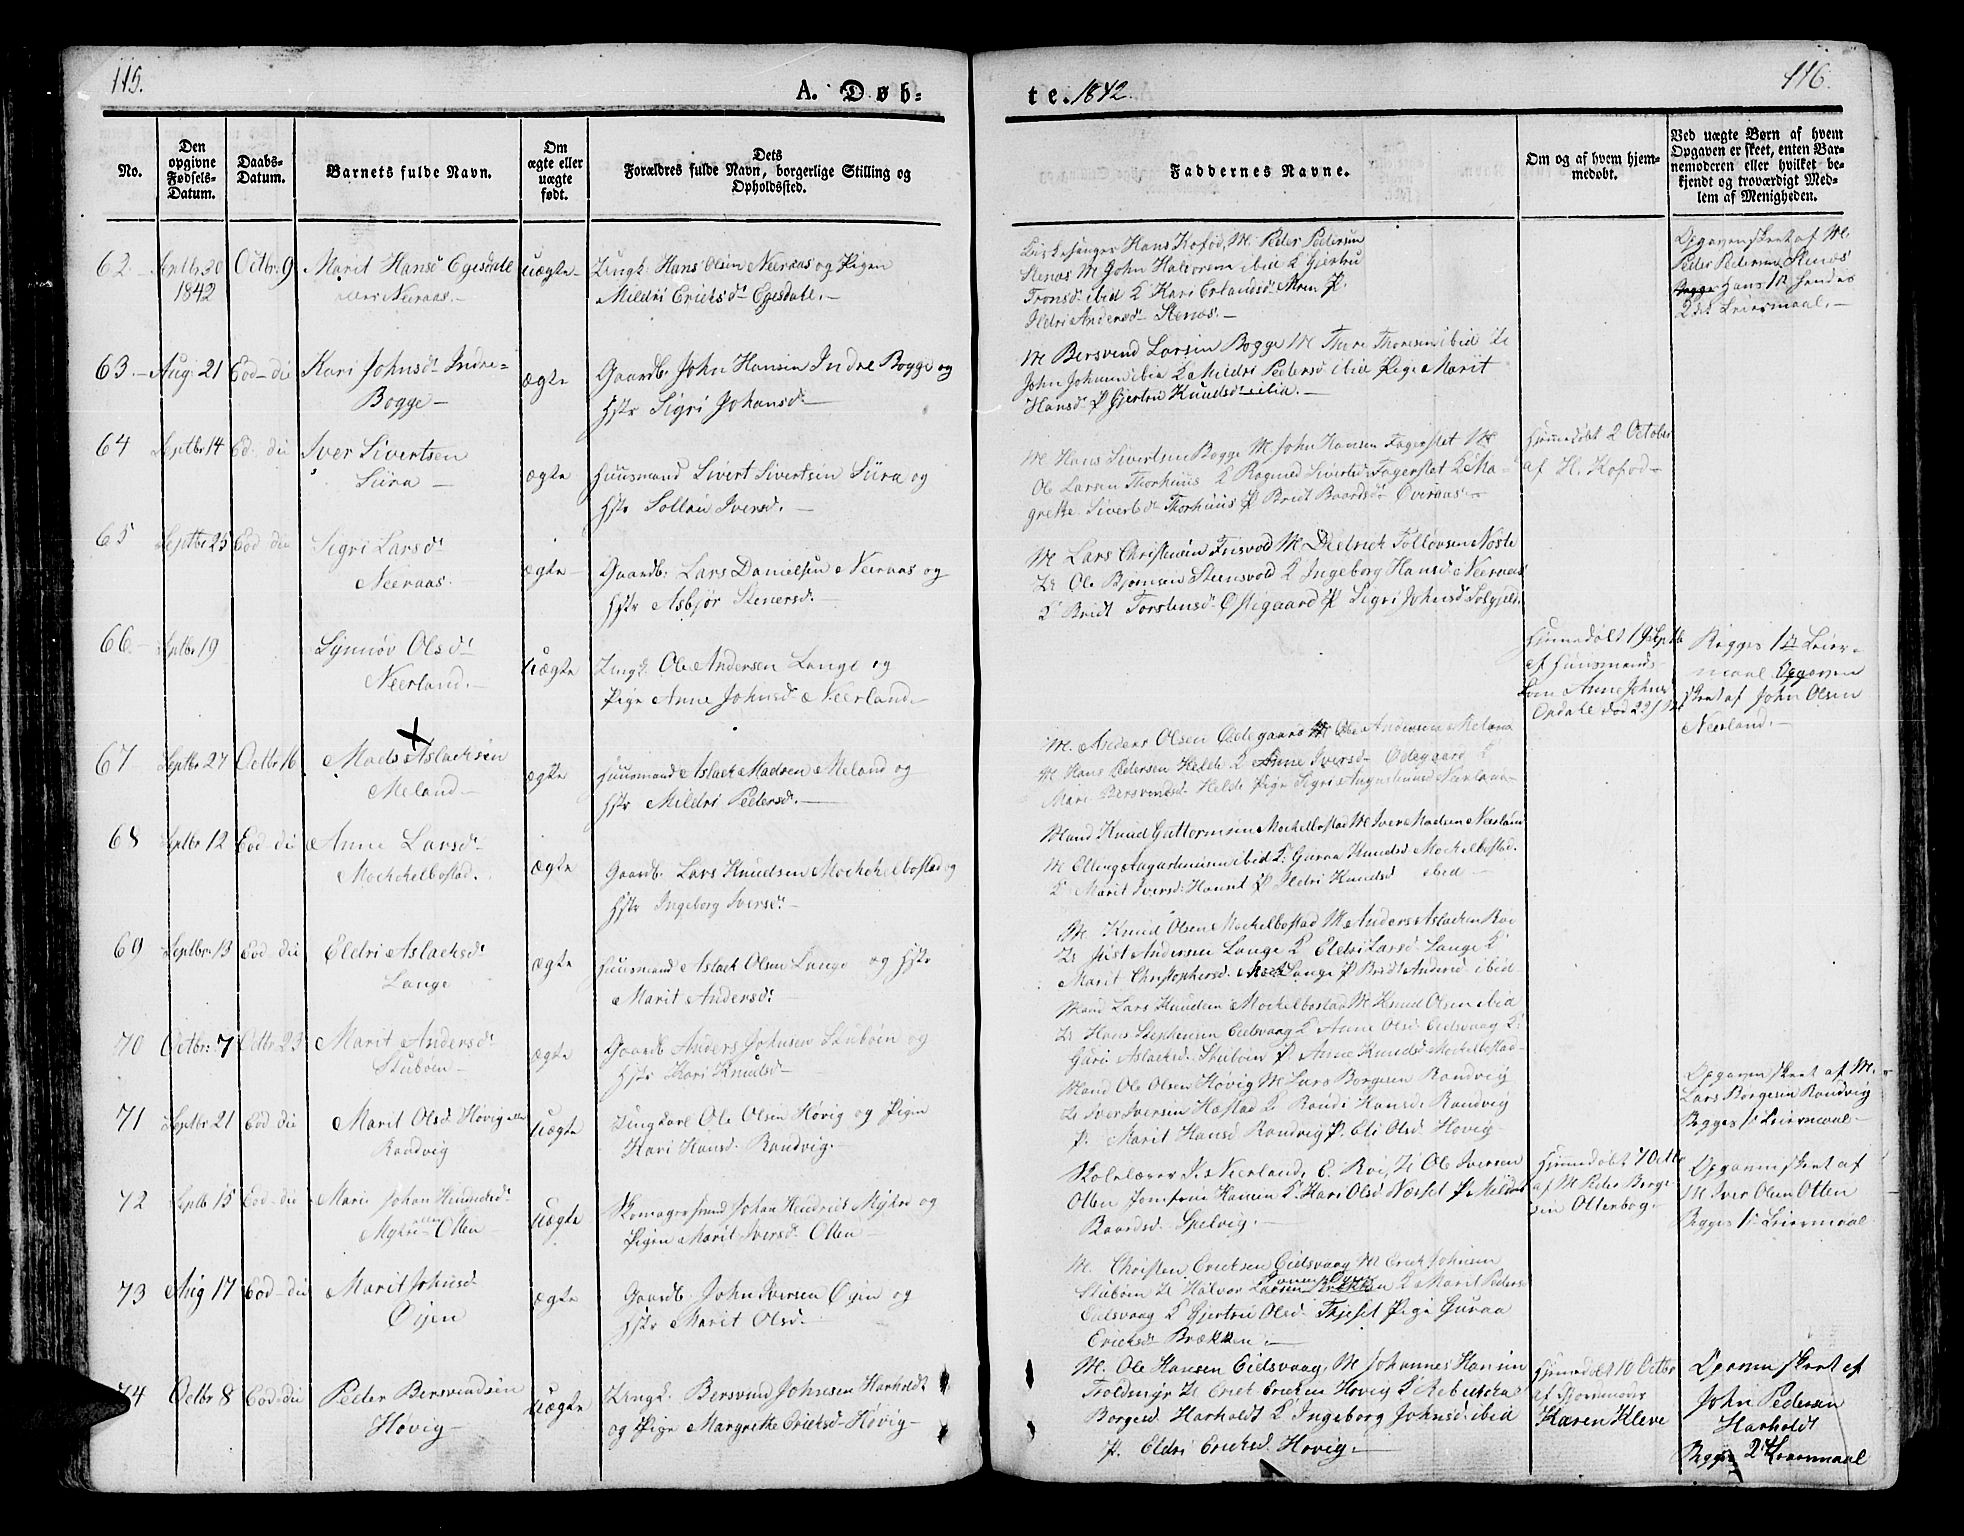 115.
A. Døb-
te. 1842.
116.
No.
Den
opgivne
Fødsels-
Datum.
Daabs-
Datum.
Barnets fulde Navn.
Om
ægte eller
uægte
født.
Dets
Forældres fulde Navn, borgerlige Stilling og
Opholdssted.
Faddernes Navne.
Om og af hvem hjem-
medøbt.
Ved uægte Børn af hvem
Opgaven er skeet, enten Bar-
nemoderen eller hvilket be-
kjendt og troværdigt Med-
lem af Menigheden.
62. Septbr 30 Octbr 9 Marit Hansd Egesdale uægte Ungk. Hans Olsen Neeraas og Pigen
1842 Neeraas. Mildri Ericksd Egesdale.
Kirkesanger Hans Kofod, M. Peder Pedersen
Stenæs M John Halvorsen ibid K Gjertru
Tronsd ibid K Kari Erlandsd Moen P.
Ildri Andersd Stenæs.
Opgaven skeet af M.
Peder Pedersen Stenæs
Hans 1ste hendes
2det Leiermaal.
63. Aug. 21 Eod die Kari Johnsd Indre- ægte Gaardb. John Hansen Indre Bogge og
Bogge Hstr Sigri Johansd.
M Bersvend Larsen Bogge M Ture Thoresen ibid
John Johnsen ibid K Mildri Pedersd ibid Pige Marit
Hansd P Gjertru Knudsd ibid.
64 Septbr 14 Eod. die Iver Sivertsen ægte Huusmand Sivert Sivertsen Süra og
Süra Hstr Sollau Iversd.
M Hans Sivertsen Bogge M John Hansen Fagerslet M
Ole Larsen Thorhuus K Ragned Sivertsd Fagerslet K Ma-
grethe Sivertsd Thorhuus P Brit Baardsd Overaas
Hjemmedøbt 2 October
af H. Kofod
65 Septbr 25 Eod die Sigri Larsd ægte Gaardb. Lars Danielsen Neeraas og
Neeraas. Hstr Asbjør Stenersd.
M Lars Christensen Frisvod M Diedrich Tollevsen Noste
U Ole Bjørnsen Steensvold K Ingeborg Hansd Neeraas
K Bridt Torstensd Østigaard P Sigri Johnsd Tolgjeld.
66. Septbr 19 Synnøv Olsd uægte Ungk. Ole Andersen Lange og
Neerland. Pige Anne Johnsd Neerland.
Hjemmedøbt 19 Septbr
af Huusmands-
Kone Anne Johnsd
Opdale død 22
Begges 1ste Leier-
maal Opgaven
skeet af John Olsen
Neerland.
67 Septbr 27 Octbr 16 Mads Aslachsen ægte Huusmand Aslack Madsen Meland og
Meland Hstr Mildri Pedersd.
M. Anders Olsen Ødegaard M Ole Andersen Meland
M Hans Pedersen Helde K Anne Iversd Ødegaard K
Mari Bersvendsd Helde Pige Sigri Neerland
68 Septbr 12 Eod die Anne Larsd ægte Gaardb. Lars Knudsen Mochelbostad og
Mochelbostad. Hstr Ingeborg Iversd.
Mand Knud Guttormsen Mochelbostad M Iver Madsen Neerland
M Elling ibid K. Guraa Knudsd Mochelbostad.
K Marit Iversd P Ildri Knudsd ibid
69 Septbr 13 Eod die Eldri Aslacksd ægte Huusmand Aslack Olsen Lange og Hstr
Lange Marit Andersd.
M Knud Olsen Mochelbostad M Anders Aslacksen Roe
U Andersen Lange K Eldri Larsd Lange K
Marit Christophersd. Lange P Bridt Andersd ibid
70 Octbr: 7 Octbr 23 Marit Andersd ægte Gaardb Anders Johnsen Stubøen og
Stubøen Hstr Kari Knudsd
Mand Lars Knudsen Mochelbostad M Knud Olsen ibid
U Hans Stephensen Eidsvaag K Anne Olsd Eidsvaag K
Guri Aslacksd. Stubøen P. Anne Knudsd Mochelbostad
71 Septbr 21 Eod die Marit Olsd Høvig eller uægte Ungkarl Ole Olsen Høvig og Pigen
Randvig Kari Hansd Randvig.
Mand Ole Olsen Høvig M Lars Borgesen Randvig
U Iver Iversen Hastad K Randi Hansd Randvig
P. Marit Hansd Randvig P. Eli Olsd Høvig
Opgaven skeet af M.
Lars Borgesen Randvig
Begges 1ste Leiermaal
72 Septb 15 Eod die Mari Johan Hendricksd uægte Skomagersvend Johan Hendrik Myhre og
Myhre eller Otten Pigen Marit Iversd Otten
Skolelærer Neerland, E. Roe, U Ole Iversen
Otten Jomfrue Hansen K. Kari Olsd Næsset P Mildri
Baardsd Spelvig.
Hjemmedøbt 7 Octbr
af M Peder Borge-
sen Otterbog.
Opgaven skeet af
M Iver Olsen Otten
Begges 1ste Leiermaal
73 Aug 17 Eod die Marit Johnsd ægte Gaardb. John Iversen Øyen og
Øijen Hstr Marit Olsd.
M. Christen Ericksen Eidsvaag M Erick Johnsen
Stubøen U Halvor Larsen K Marit Pedersd
Eidsvaag K Gjertru Olsd. Tkjeset Pige Guraa
Ericksd Brækken.
74 Octbr 8 Eod die Peder Bersvendsen uægte Ungk. Bersvend Johnsen Harholdt
Høvig og Pige Margrethe Ericksd Høvig
M. Ole Hansen Eidsvaag, M Johannes Hansen
Toldmyr U Erick Ericksen Høvig K Rebekka
Borgesd. Harholdt K Ingeborg Johnsd ibid
P. Eldri Ericksd Høvig.
Hjemmedøbt 10 Octbr
af Gjormoder
Karen Kleve
Opgaven skeet af
John Pedersen
Harholdt
Begges 2det Leiermaal